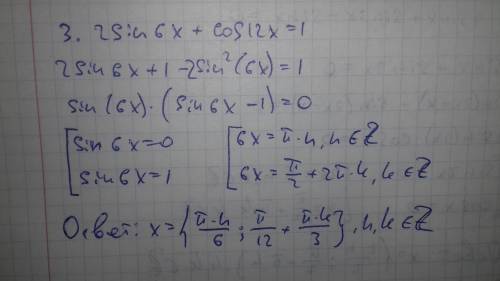 3. 2sin6x + cos12x = 1
2sin6x + 1 - 2sin²(6x) = 1
sin(6x)·(sin6x - 1) = 0
[sin6x = 0 [6x = π·n, n ∈ Z
sin6x = 1 6x = π/2 + 2π·k, k ∈ Z
Ответ: x = {π·n/6 ; π/12 + π·k/3}, n, k ∈ Z